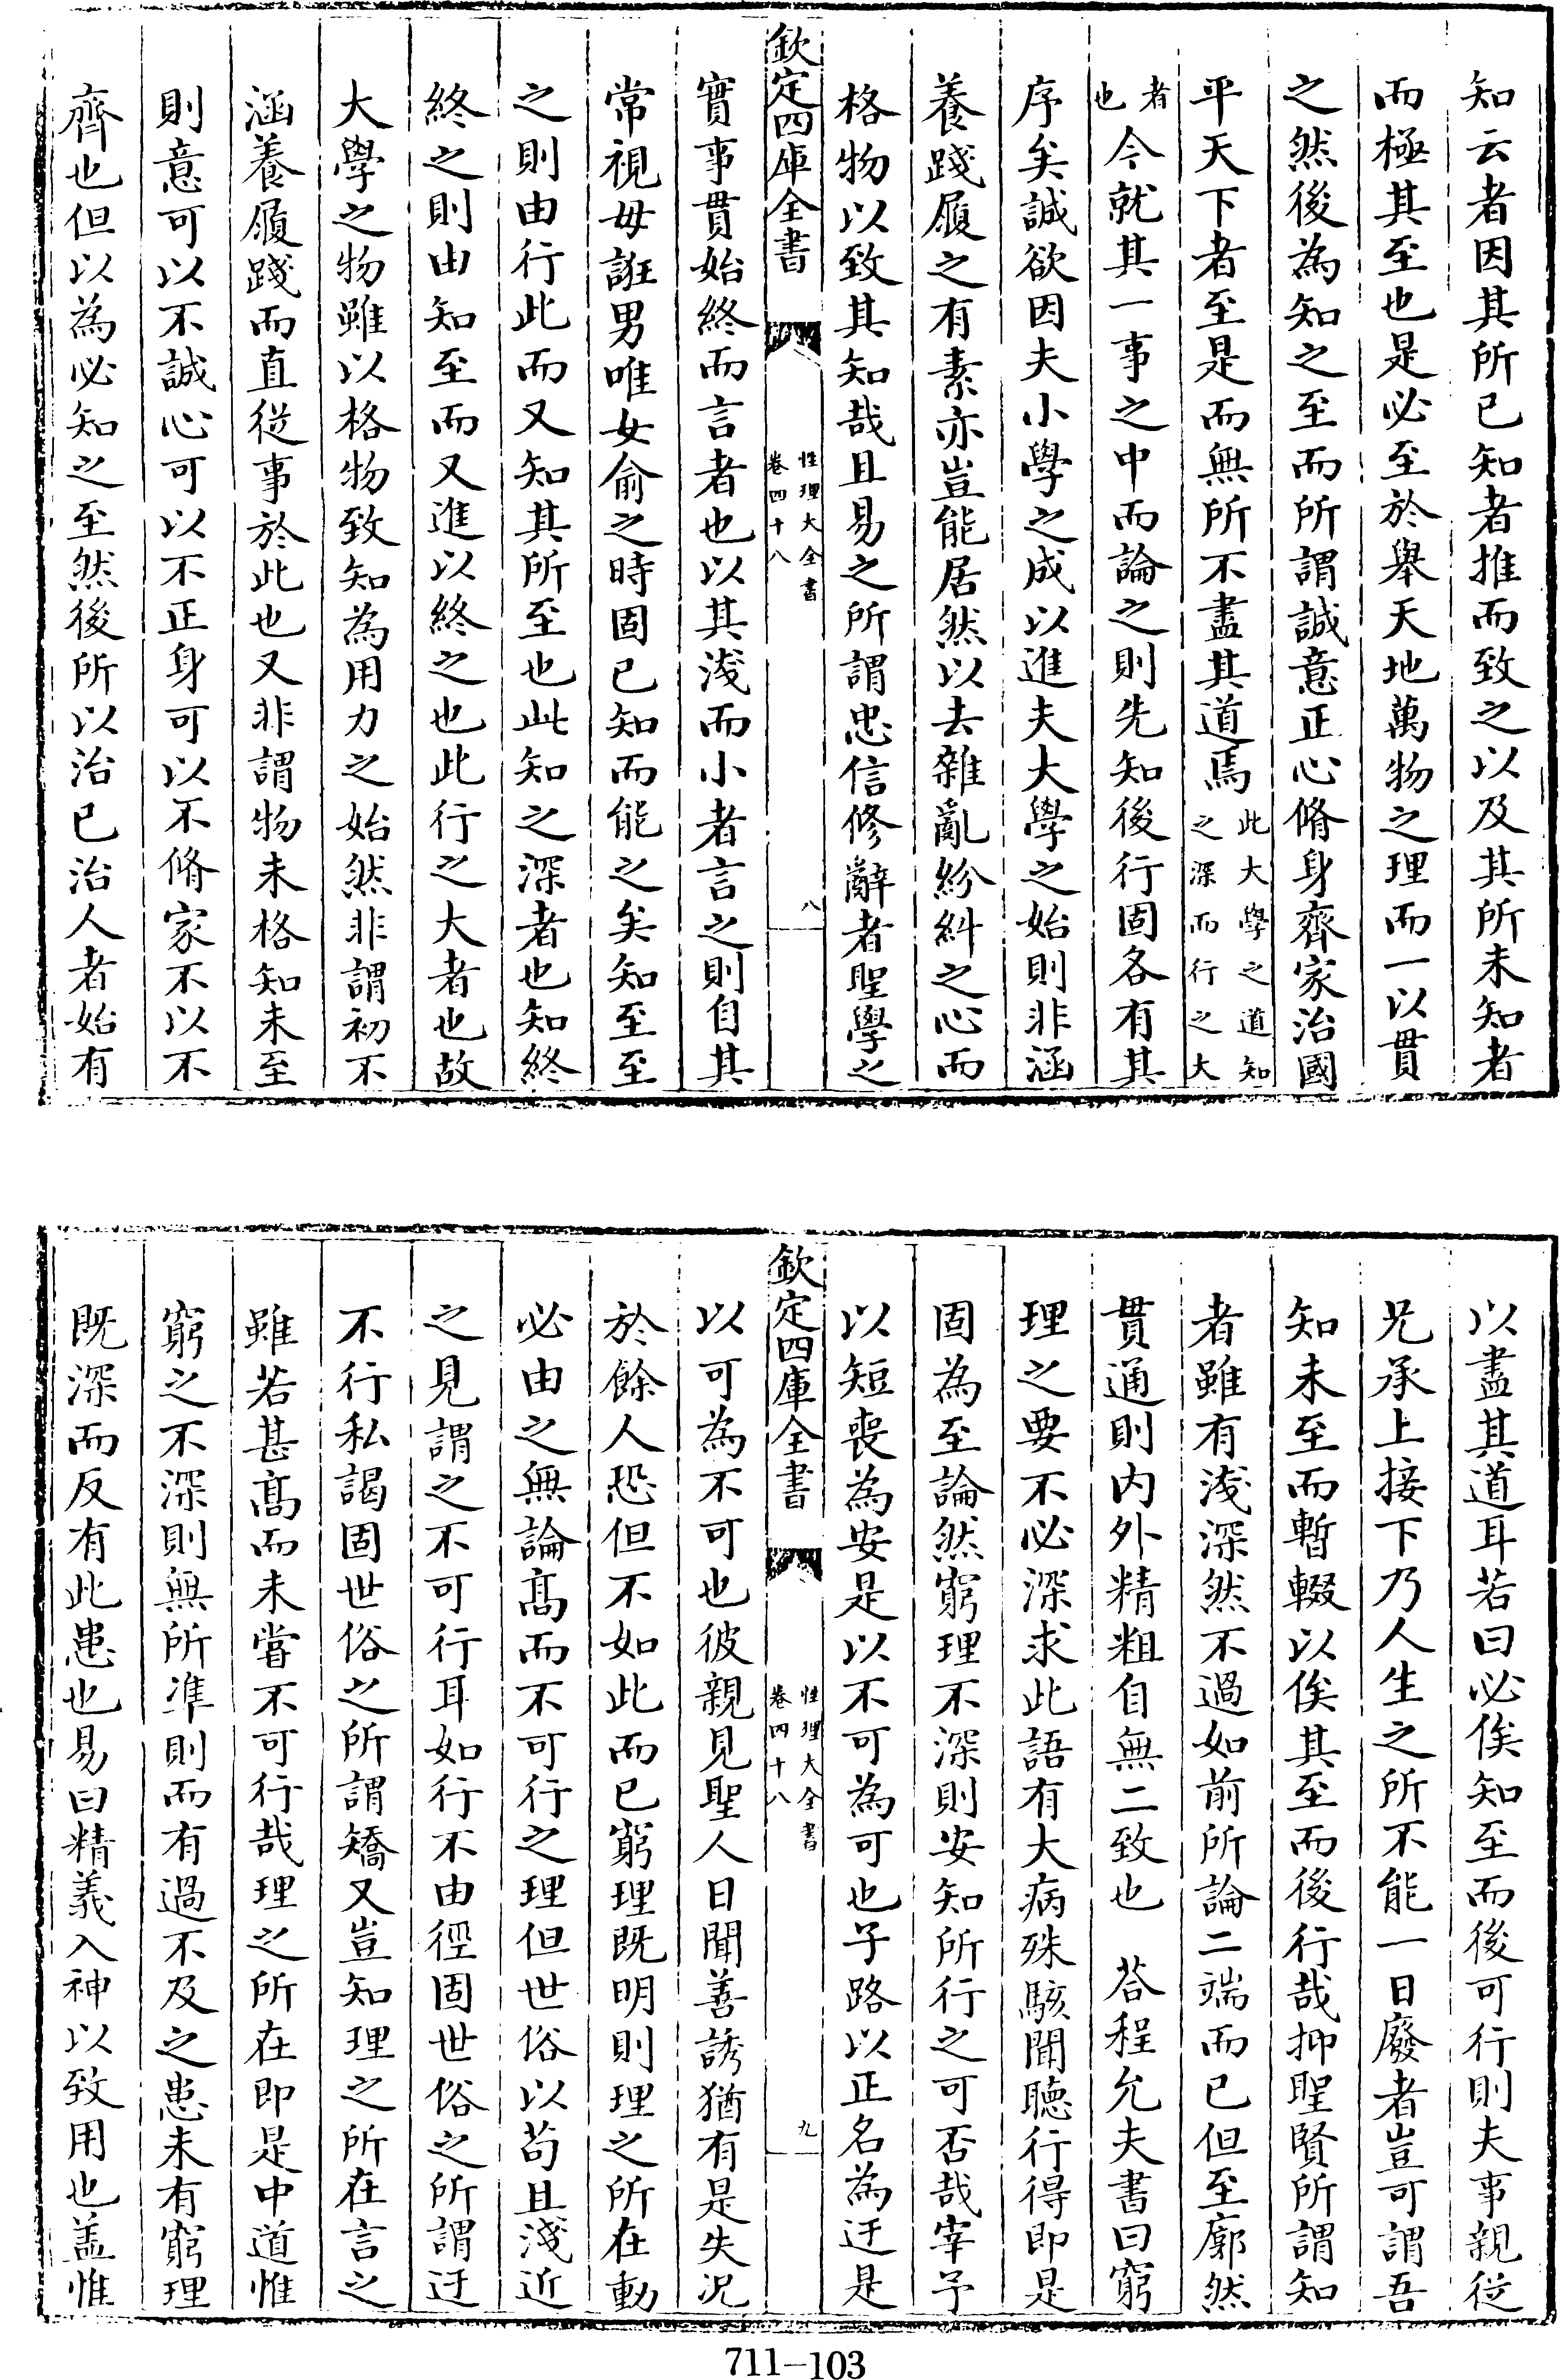 知云者因其所已知者推而致之以及其所未知者
而極其至也是必至於舉天地萬物之理而一以貫
之然後為知之至而所謂誠意正心脩身齊家治國
平天下者至是而無所不盡其道焉此大學之道知之深而行之大
者也今就其一事之中而論之則先知後行固各有其
序矣誠欲因夫小學之成以進夫大學之始則非涵
養踐履之有素亦豈能居然以去雜亂紛糾之心而
格物以致其知哉且易之所謂忠信修辭者聖學之
欽定四庫全書
性理大全書
卷四十八
八
實事貫始終而言者也以其淺而小者言之則自其
常視毋誑男唯女俞之時固已知而能之矣知至至
之則由行此而又知其所至也此知之深者也知終
終之則由知至而又進以終之也此行之大者也故
大學之物雖以格物致知為用力之始然非謂初不
涵養履踐而直從事於此也又非謂物未格知未至
則意可以不誠心可以不正身可以不脩家不以不
齊也但以為必知之至然後所以治已治人者始有
以盡其道耳若曰必俟知至而後可行則夫事親從
兄承上接下乃人生之所不能一日廢者豈可謂吾
知未至而暫輟以俟其至而後行哉抑聖賢所謂知
者雖有淺深然不過如前所論二端而已但至廓然
貫通則內外精粗自無二致也 荅程允夫書曰窮
理之要不必深求此語有大病殊駭聞聽行得即是
固為至論然窮理不深則安知所行之可否哉宰予
以短喪為安是以不可為可也子路以正名為迂是
欽定四庫全書
性理大全書
卷四十八
九
以可為不可也彼親見聖人日聞善誘猶有是失况
於餘人恐但不如此而已窮理既明則理之所在動
必由之無論髙而不可行之理但世俗以苟且淺近
之見謂之不可行耳如行不由徑固世俗之所謂迂
不行私謁固世俗之所謂矯又豈知理之所在言之
雖若甚髙而未嘗不可行哉理之所在即是中道惟
窮之不深則無所凖則而有過不及之患未有窮理
既深而反有此患也易曰精義入神以致用也盖惟
711-103